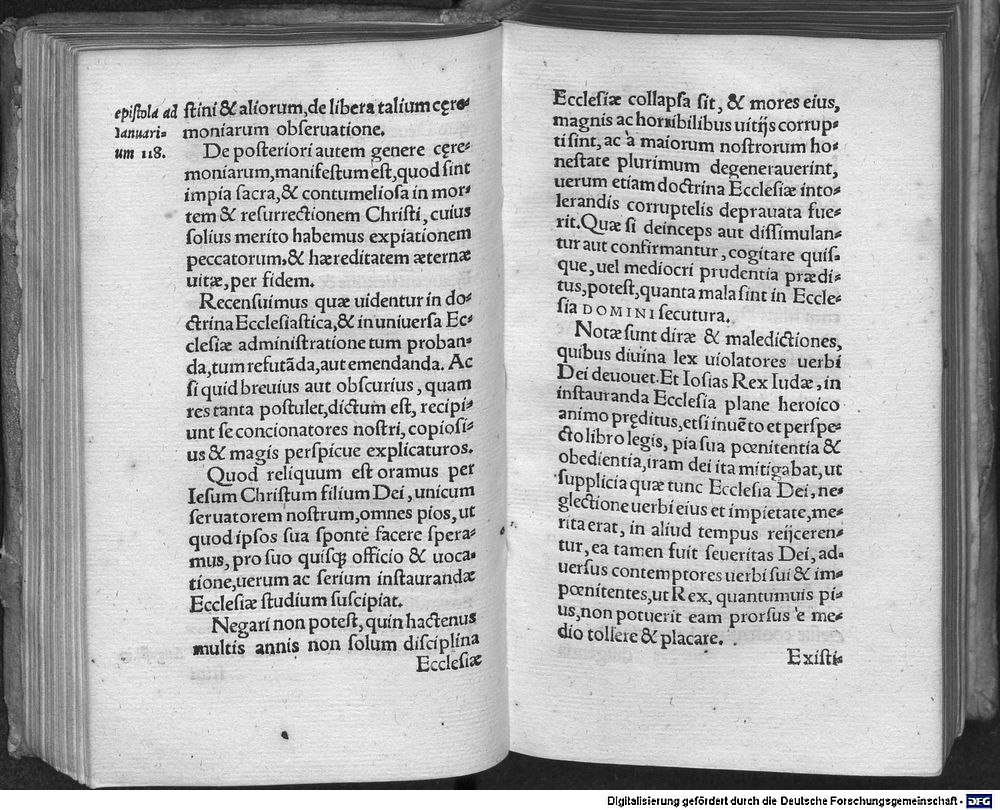 epistola ad
Ianuari-
um 118.
stini & aliorum, de libera talium cęre-
moniarum obseruatione.
De posteriori autem genere cęre-
moniarum, manifestum est, quod sint
impia sacra, & contumeliosa in mor-
tem & resurrectionem Christi, cuius
solius merito habemus expiationem
peccatorum, & hæreditatem æternæ
uitæ, per fidem.
Recensuimus quæ uidentur in do-
ctrina Ecclesiastica, & in uniuersa Ec-
clesiæ administratione tum proban-
da, tum refutãda, aut emendanda. Ac
si quid breuius aut obscurius, quam
res tanta postulet, dictum est, recipi-
unt se concionatores nostri, copiosi-
us & magis perspicue explicaturos.
Quod reliquum est oramus per
Iesum Christum filium Dei, unicum
seruatorem nostrum, omnes pios, ut
quod ipsos sua sponte facere spera-
mus, pro suo quisq; officio & uoca-
tione, uerum ac serium instaurandæ
Ecclesiæ studium suscipiat.
Negari non potest, quin hactenus
multis annis non solum disciplina
Ecclesiæ
Ecclesiæ collapsa sit, & mores eius,
magnis ac horribilibus uitijs corrup-
ti sint, ac à maiorum nostrorum ho-
nestate plurimum degenerauerint,
uerum etiam doctrina Ecclesiæ into-
lerandis corruptelis deprauata fue-
rit. Quæ si deinceps aut dissimulan-
tur aut confirmantur, cogitare quis-
que, uel mediocri prudentia prædi-
tus, potest, quanta mala sint in Eccle-
sia DOMINI secutura.
Notæ sunt diræ & maledictiones,
quibus diuina lex uiolatores uerbi
Dei deuouet. Et Iosias Rex Iudæ, in
instauranda Ecclesia plane heroico
animo pręditus, etsi inuẽto et perspe-
cto libro legis, pia sua pœnitentia &
obedientia, iram dei ita mitigabat, ut
supplicia quæ tunc Ecclesia Dei, ne-
glectione uerbi eius et impietate, me-
rita erat, in aliud tempus reijceren-
tur, ea tamen fuit seueritas Dei, ad-
uersus contemptores uerbi sui & im-
pœnitentes, ut Rex, quantumuis pi-
us, non potuerit eam prorsus è me-
dio tollere & placare.
Existi-
Digitalisierung gefördert durch die Deutsche Forschungsgemeinschaft - DFG